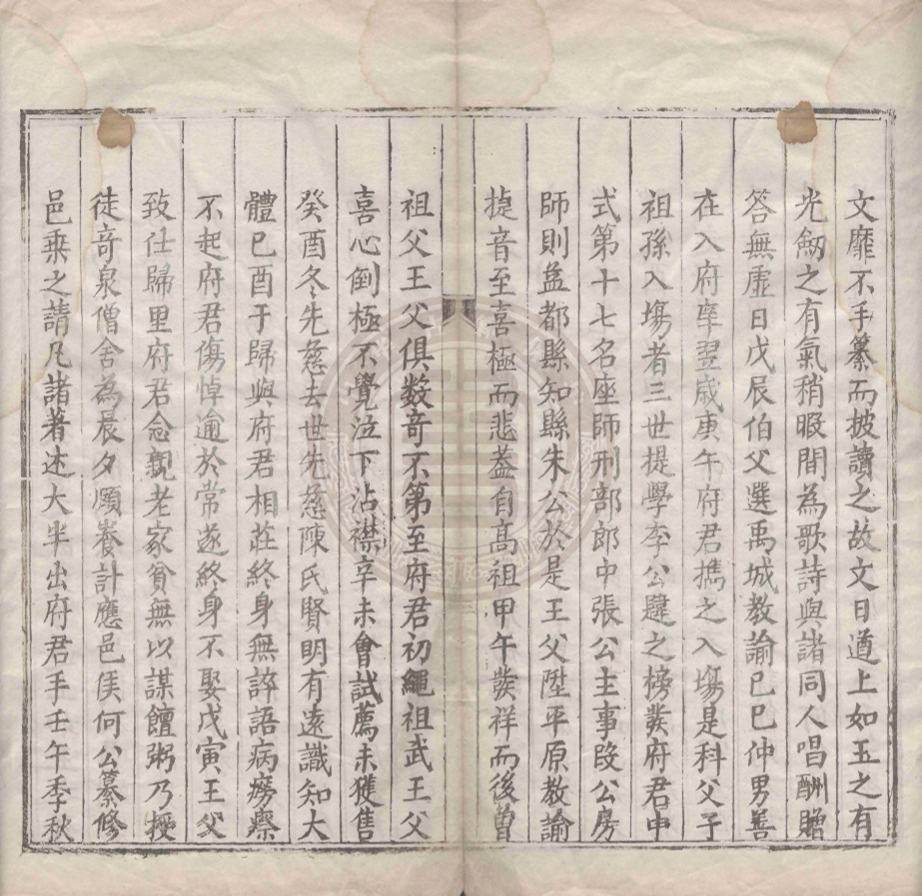 文靡不手纂而披讀之故文日遒上如玉之有
光劒之有氣稍暇間為歌詩與諸同人唱酬贈
答無虛日戊辰伯父選禹城教諭己巳仲男善
在入府庠翌歲庚午府君攜之入塲是科父子
祖孫入塲者三世提學李公韙之榜發府君中
式第十七名座師刑部郎中張公主事段公房
師則孟都縣知縣朱公於是王父陞平原教諭
捷音至喜極而悲葢自高祖甲午發祥而後曾
祖父王父俱数竒不第至府君初繩祖武王父
喜心倒極不覺泣下沾襟辛未會試薦未獲售
癸酉冬先慈去世先慈陳氏賢明有遠識知大
體己酉于歸與府君相莊終身無誶語病癆瘵
不起府君傷悼逾於常遂終身不娶戊寅王父
致仕歸里府君念親老家貧無以謀饘粥乃授
徒竒泉僧舍為晨夕頤養計應邑侯何公纂修
邑乗之請凡諸著述大半出府君手壬午季秋